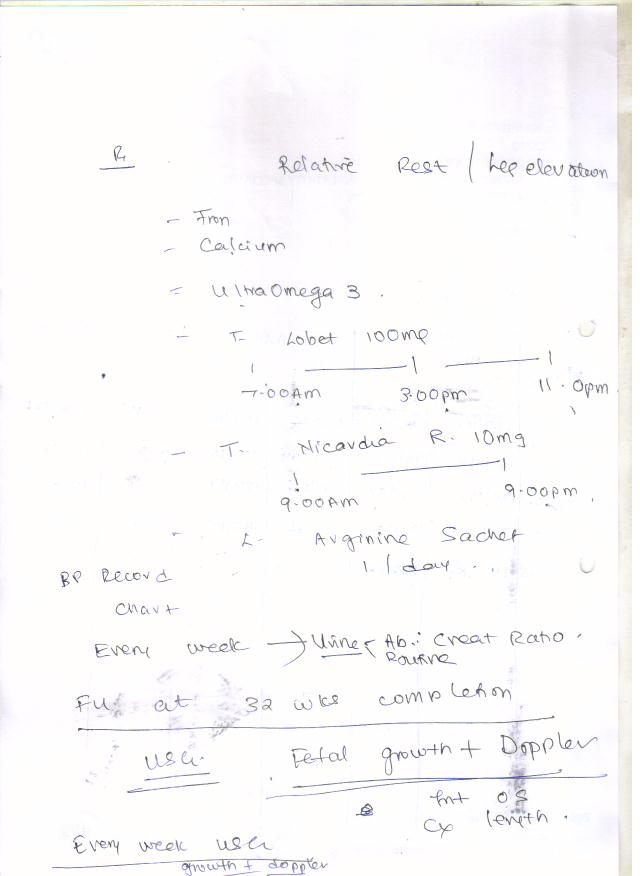 R
Relative Rest / Leg elevation
- Iron
- Calcium
= Ultra Omega 3 .
- T- Lobet 100mg
1 —— 1 —— 1
7.00Am 3.00pm 11.0pm
- T- Nicardia R. 10mg
1 —— 1
9.00Am 9.00pm
- L- Arginine Sachet
1 / day
BP Record
Chart
Every week → Urine < Ab: Creat Ratio .
Routine
FU at 32 wks completion
USG. Fetal growth + Doppler
Int OS
Cx length .
Every week USG
growth + doppler